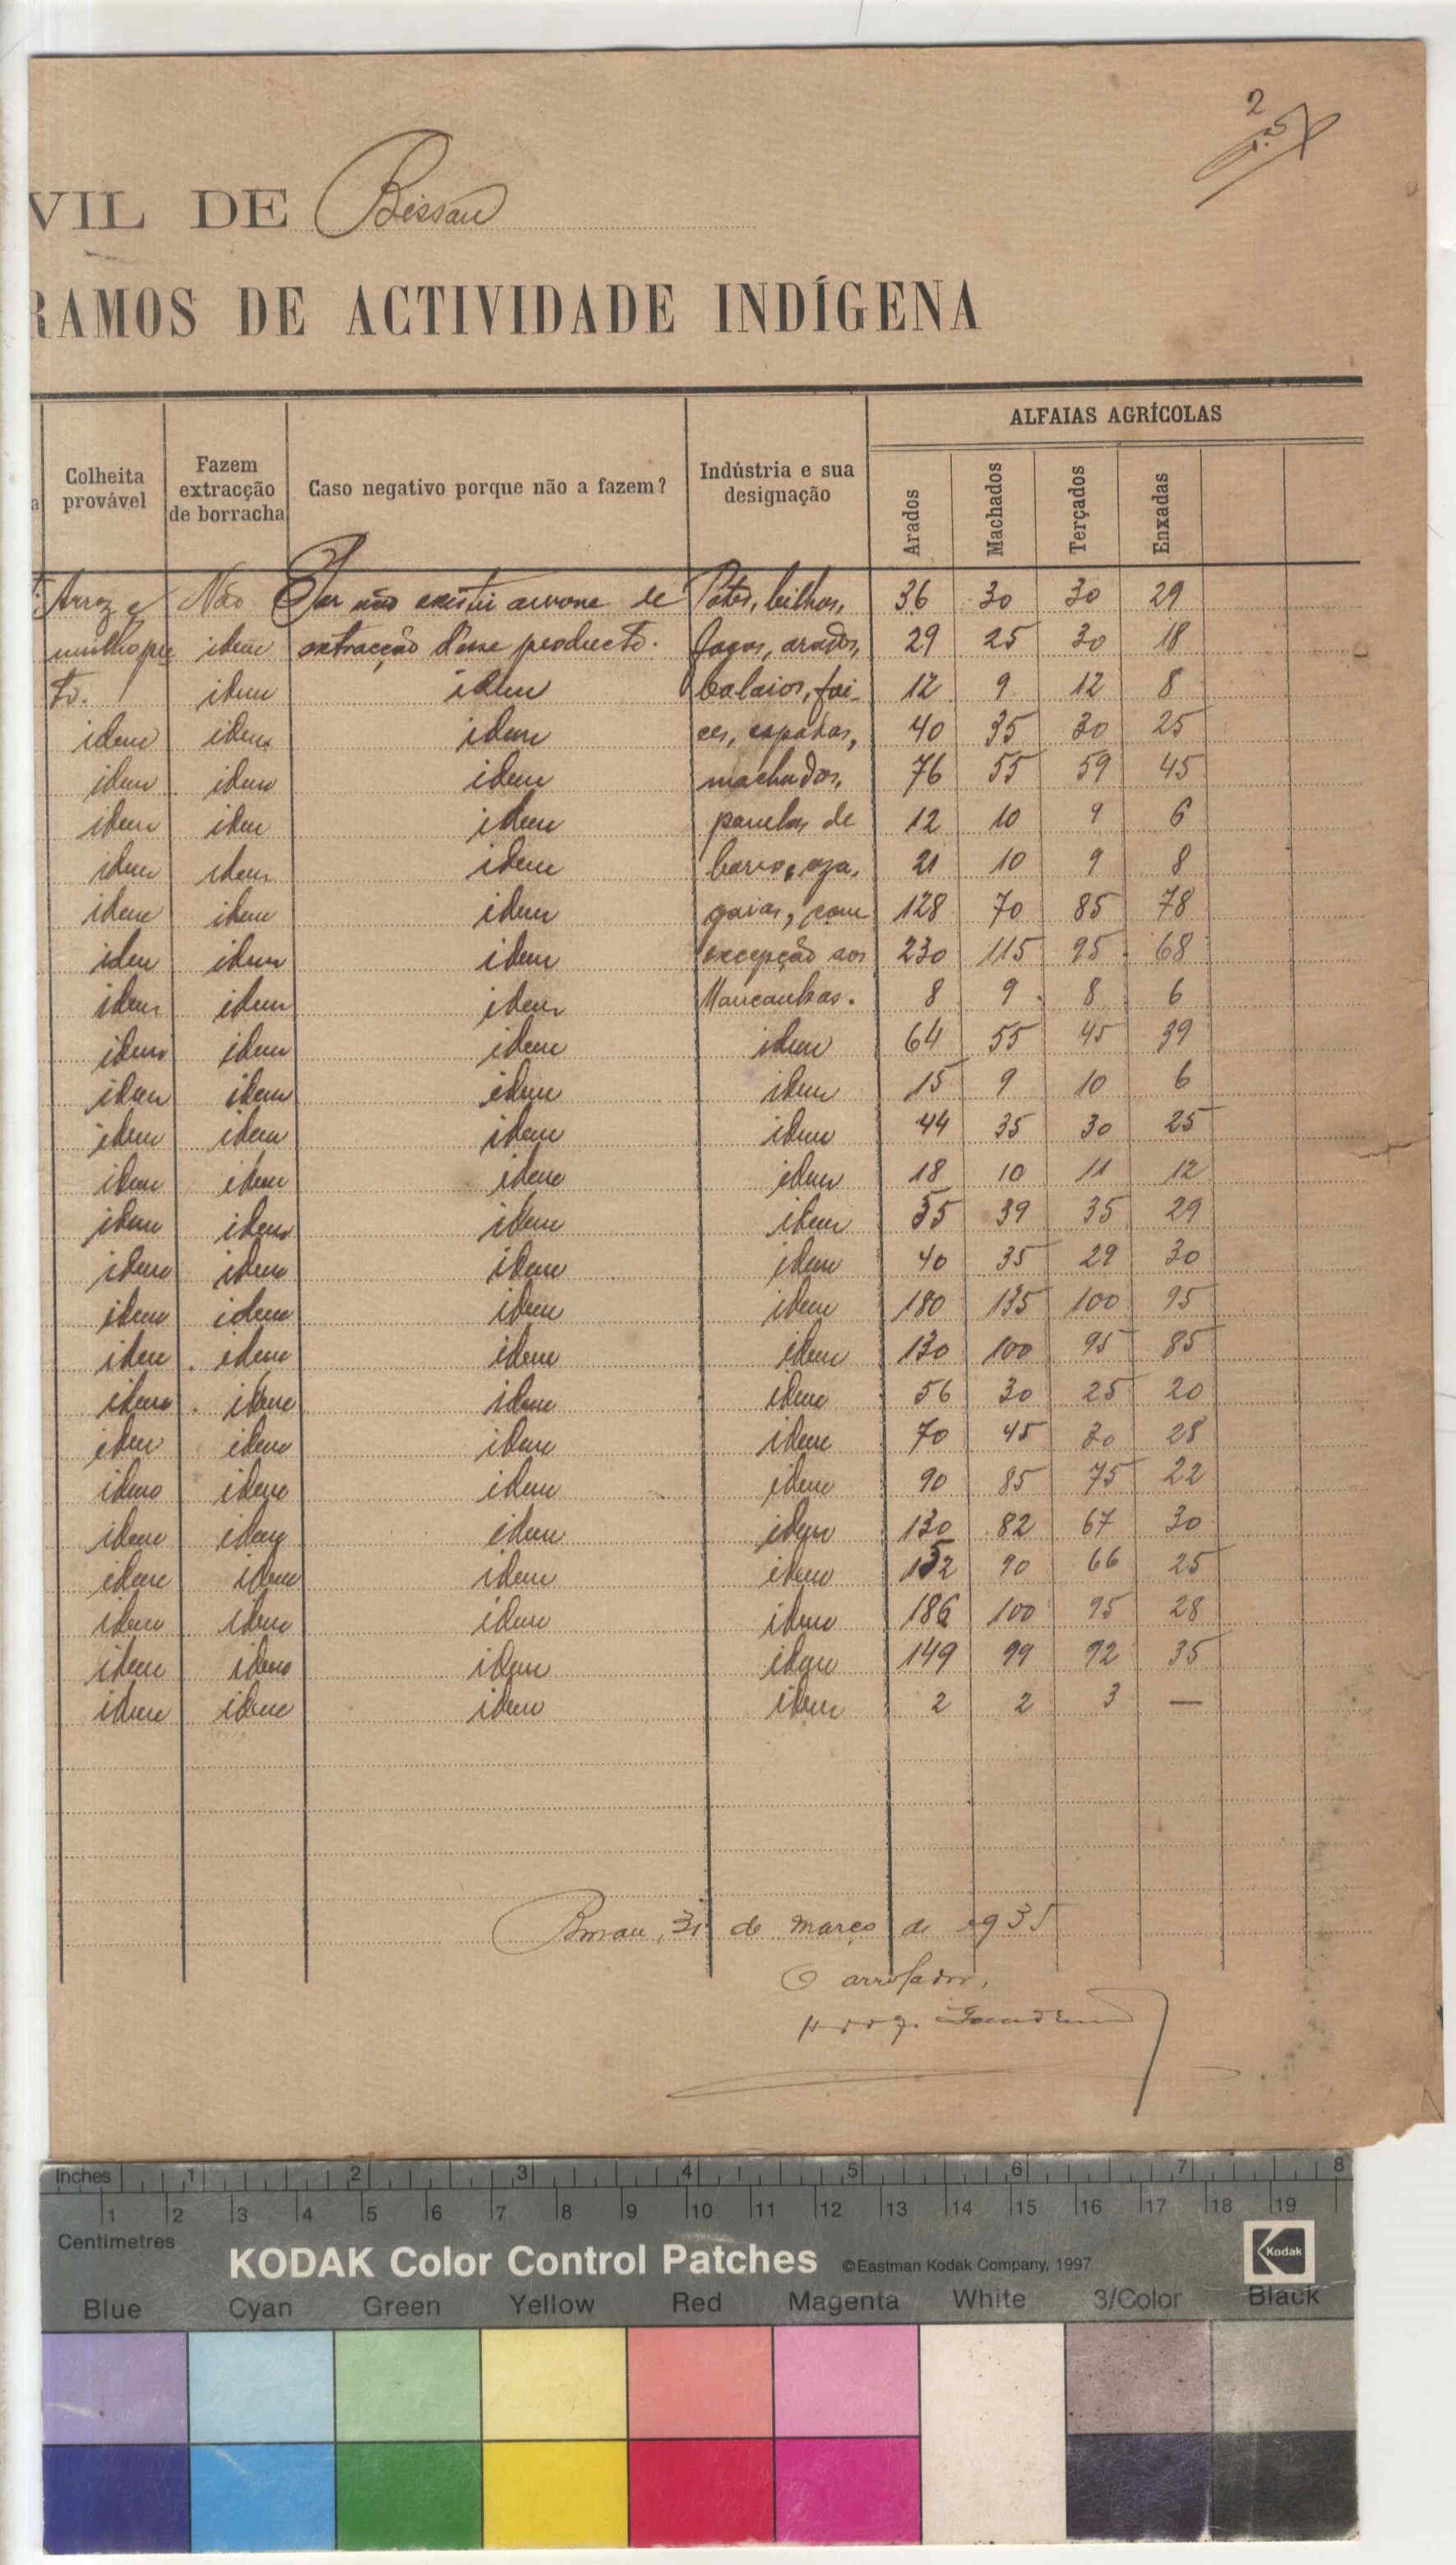 2
VIL DE Bissau
RAMOS DE ACTIVIDADE INDÍGENA
Colheita provável | Fazem extracção de borracha | Caso negativo porque não a fazem? | Indústria e sua designação | ALFAIAS AGRÍCOLAS
Arados | Machados | Terçados | Enxadas
Arroz e | Não | Por não existir arvore de | Potes, bilhas, | 36 | 30 | 30 | 29
milho pre | idem | extracção d'esse producto. | facas, arados, | 29 | 25 | 30 | 18
to. | idem | idem | balaios, foi- | 12 | 9 | 12 | 8
idem | idem | idem | ces, espadas, | 40 | 35 | 30 | 25
idem | idem | idem | machados, | 76 | 55 | 59 | 45
idem | idem | idem | panelas de | 12 | 10 | 9 | 6
idem | idem | idem | barro, aza, | 21 | 10 | 9 | 8
idem | idem | idem | gaias, com | 128 | 70 | 85 | 78
idem | idem | idem | excepção aos | 230 | 115 | 95 | 68
idem | idem | idem | Mancanhas. | 8 | 9 | 8 | 6
idem | idem | idem | idem | 64 | 55 | 45 | 39
idem | idem | idem | idem | 15 | 9 | 10 | 6
idem | idem | idem | idem | 44 | 35 | 30 | 25
idem | idem | idem | idem | 18 | 10 | 11 | 12
idem | idem | idem | idem | 55 | 39 | 35 | 29
idem | idem | idem | idem | 40 | 35 | 29 | 30
idem | idem | idem | idem | 180 | 135 | 100 | 95
idem | idem | idem | idem | 130 | 100 | 95 | 85
idem | idem | idem | idem | 56 | 30 | 25 | 20
idem | idem | idem | idem | 70 | 45 | 30 | 28
idem | idem | idem | idem | 90 | 85 | 75 | 22
idem | idem | idem | idem | 130 | 82 | 67 | 30
idem | idem | idem | idem | 152 | 90 | 66 | 25
idem | idem | idem | idem | 186 | 100 | 95 | 28
idem | idem | idem | idem | 149 | 99 | 72 | 35
idem | idem | idem | idem | 2 | 2 | 3 | —
Bissau, 31 de março de 1935
O arrolador,
Inches 1 2 3 4 5 6 7 8
1 2 3 4 5 6 7 8 9 10 11 12 13 14 15 16 17 18 19
Centimetres
KODAK Color Control Patches ©Eastman Kodak Company, 1997 Kodak
Blue Cyan Green Yellow Red Magenta White 3/Color Black